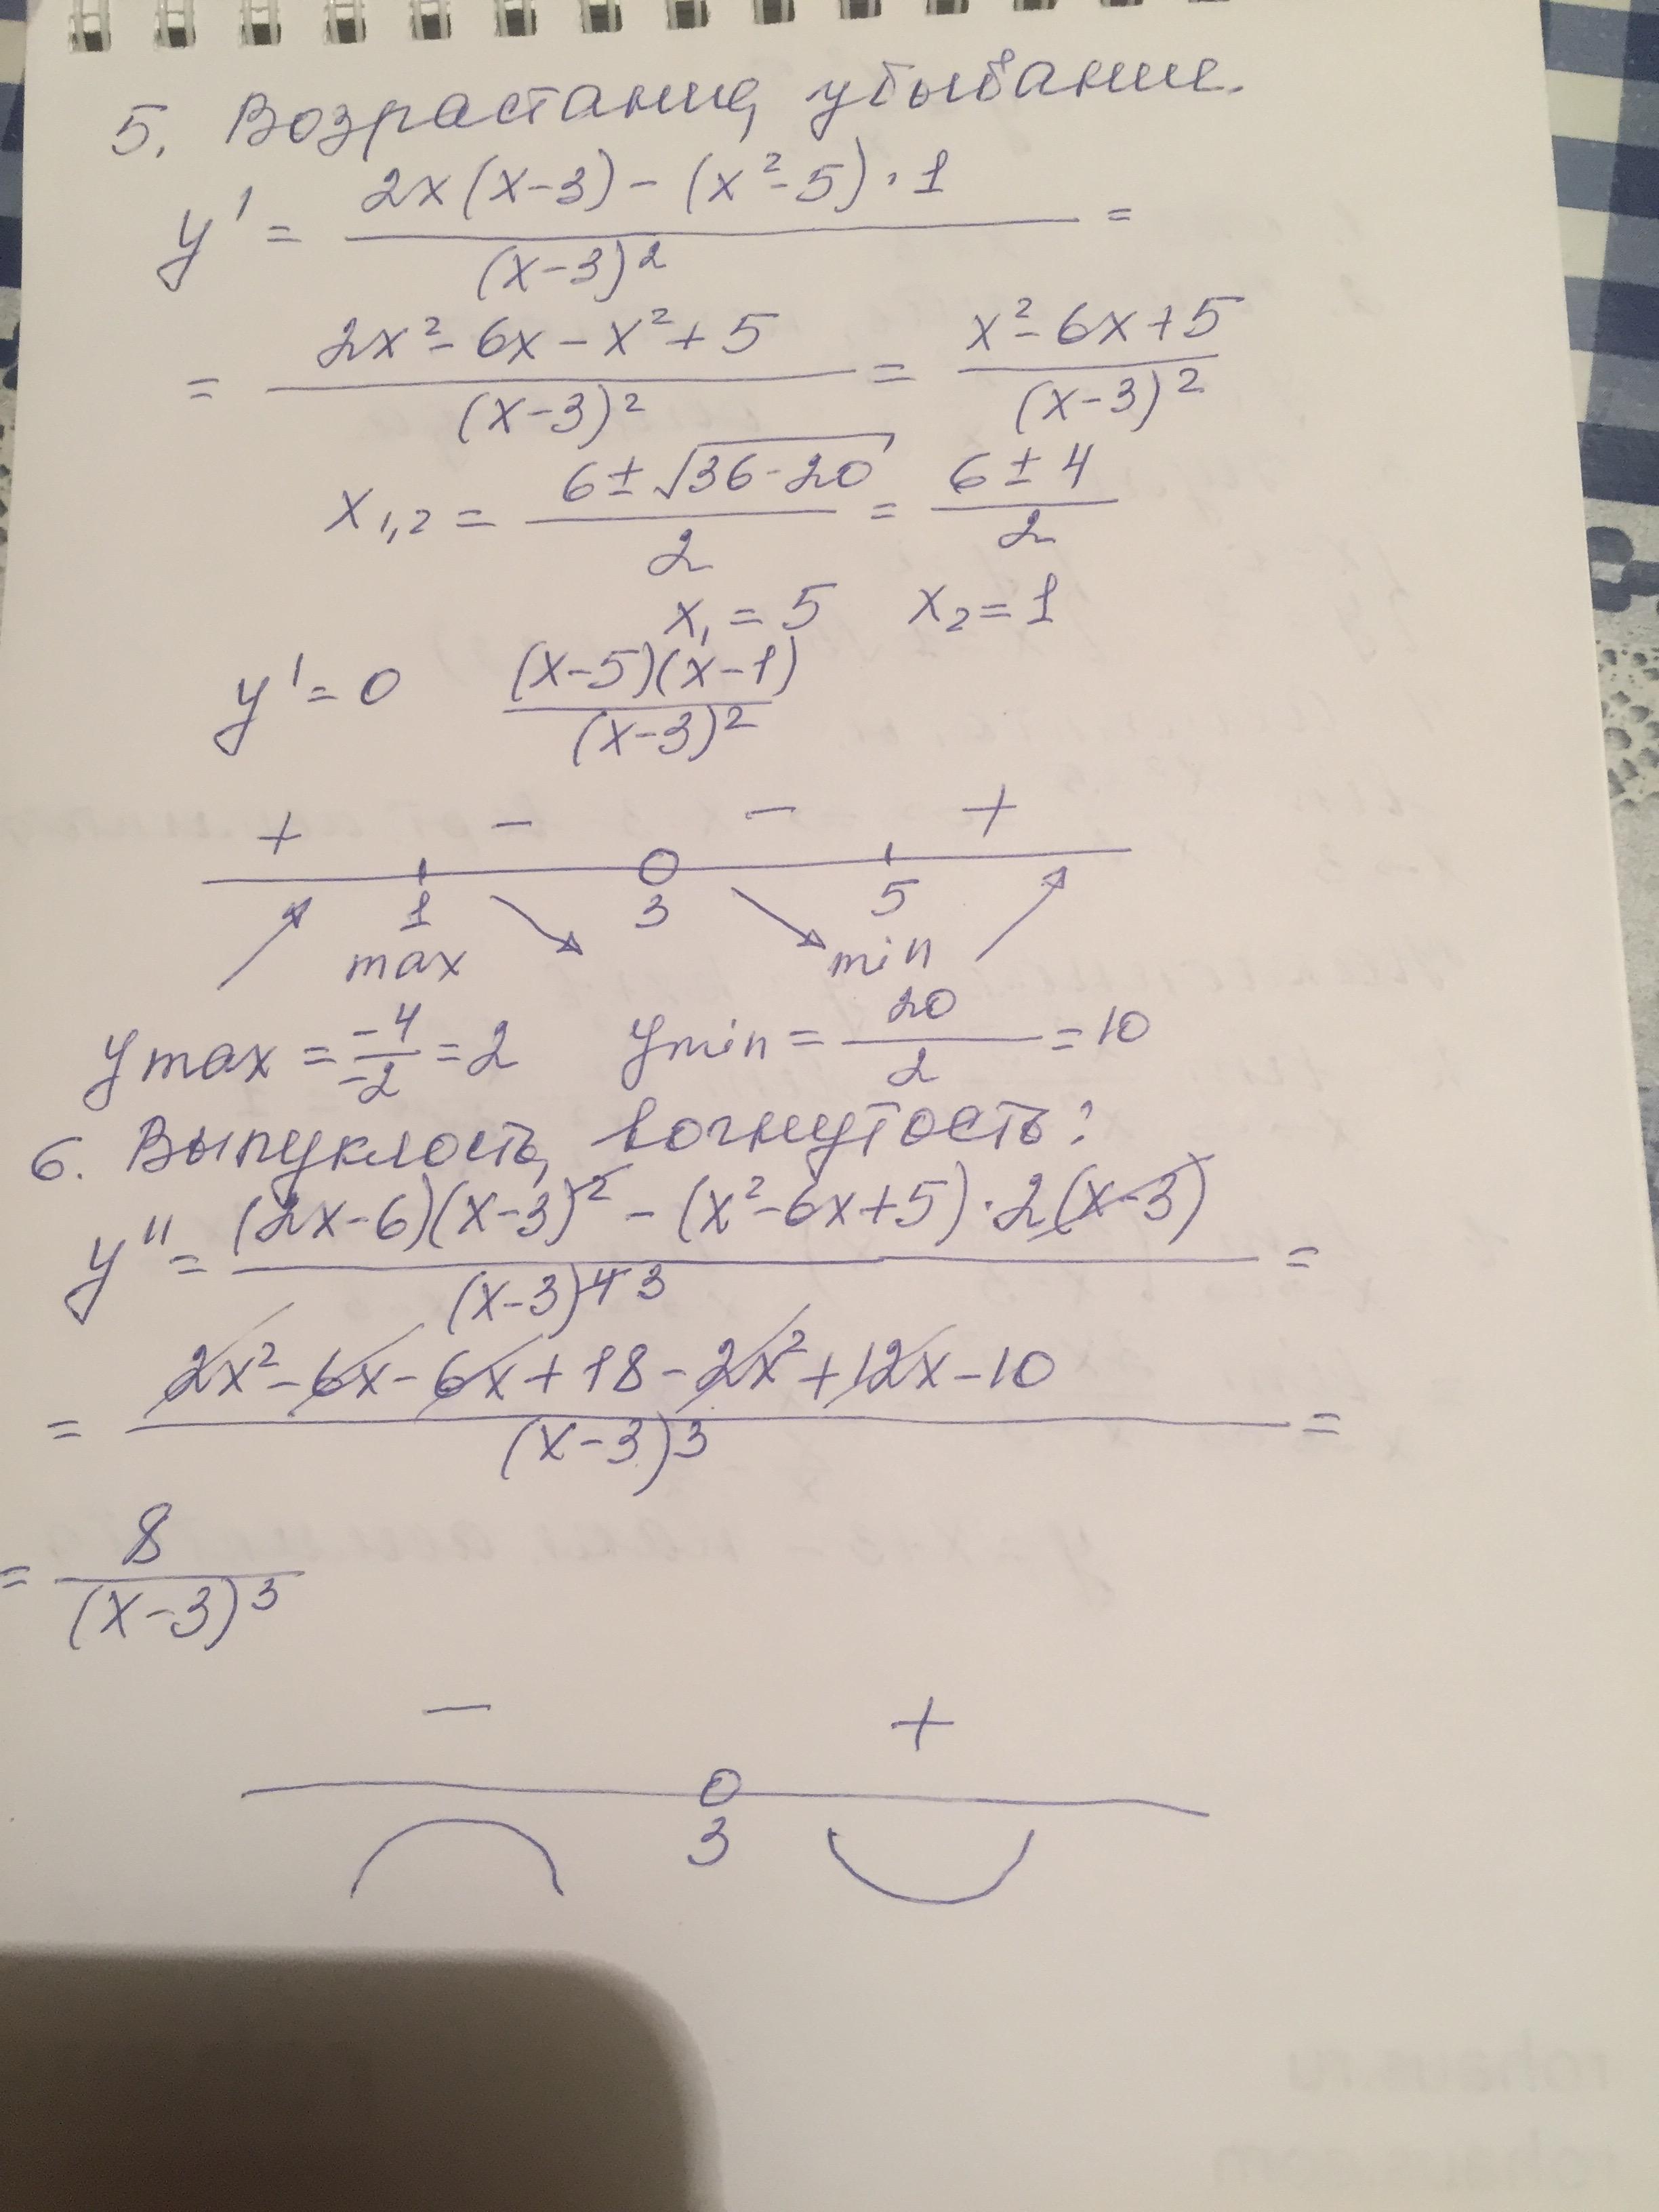 5. Возрастание, убывание.
y' = \frac{2x(x-3) - (x^2-5) \cdot 1}{(x-3)^2} =
= \frac{2x^2 - 6x - x^2 + 5}{(x-3)^2} = \frac{x^2 - 6x + 5}{(x-3)^2}
x_{1,2} = \frac{6 \pm \sqrt{36-20}}{2} = \frac{6 \pm 4}{2}
x_1 = 5 x_2 = 1
y' = 0 \frac{(x-5)(x-1)}{(x-3)^2}
+ - - +
1 3 5
max min
y max = \frac{-4}{-2} = 2 y min = \frac{20}{2} = 10
6. Выпуклость, вогнутость:
y'' = \frac{(2x-6)(x-3)^2 - (x^2-6x+5) \cdot 2(x-3)}{(x-3)^{4 3}} =
= \frac{2x^2 - 6x - 6x + 18 - 2x^2 + 12x - 10}{(x-3)^3} =
= \frac{8}{(x-3)^3}
- +
3